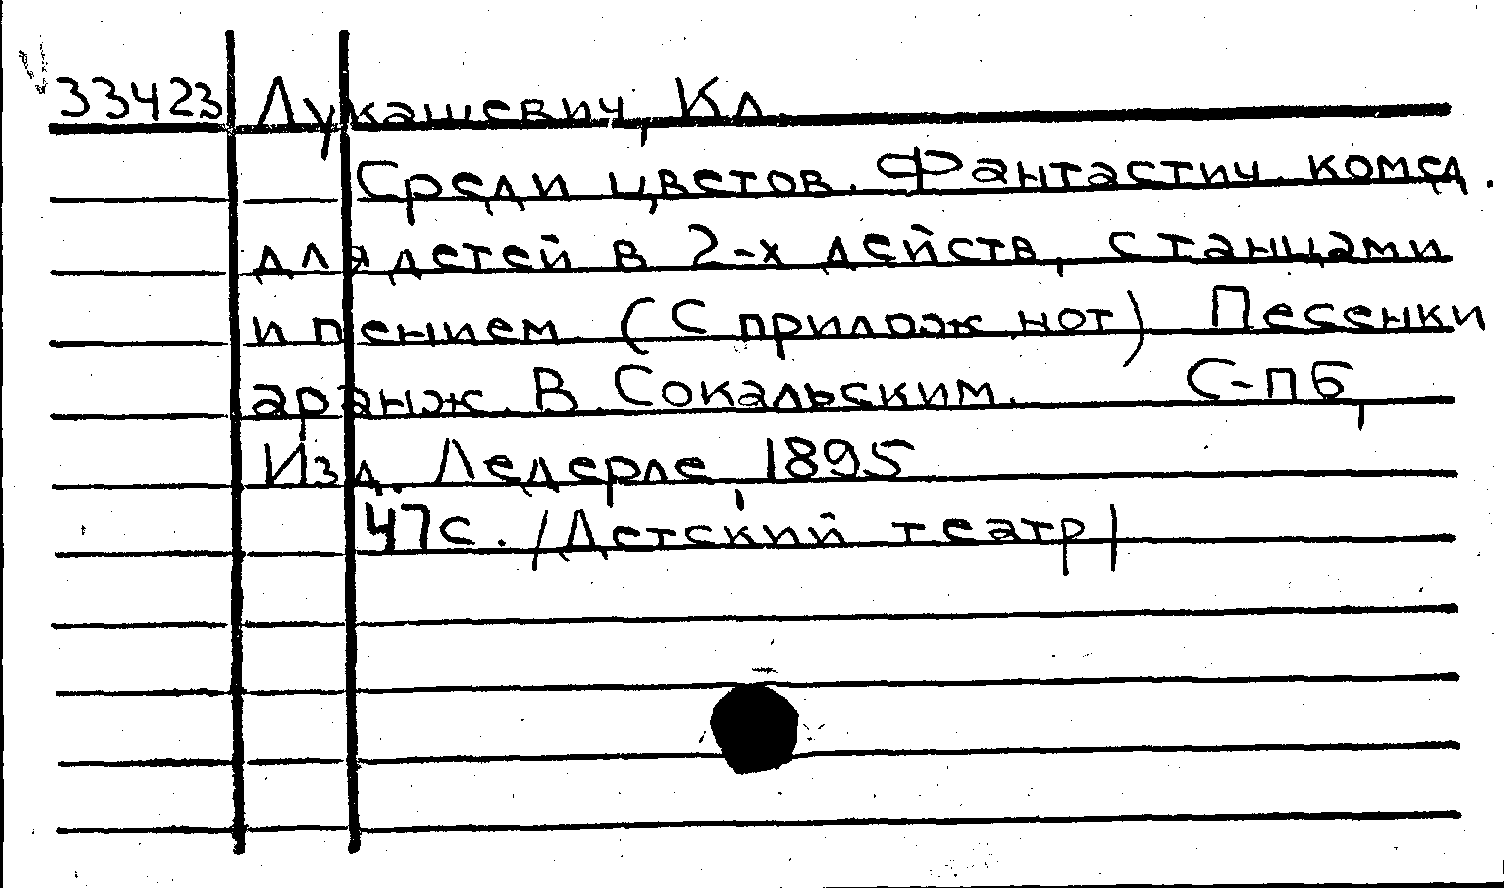 33423 Лукашевич, Кл
Среди цветов. Фантастич. комед.
для детей в 2-х действ, с танцами
и пением (С прилож нот) Песенки
аранж. В. Сокальским. С-пб,
Изд. Ледерле, 1895
47с. /Детский театр/